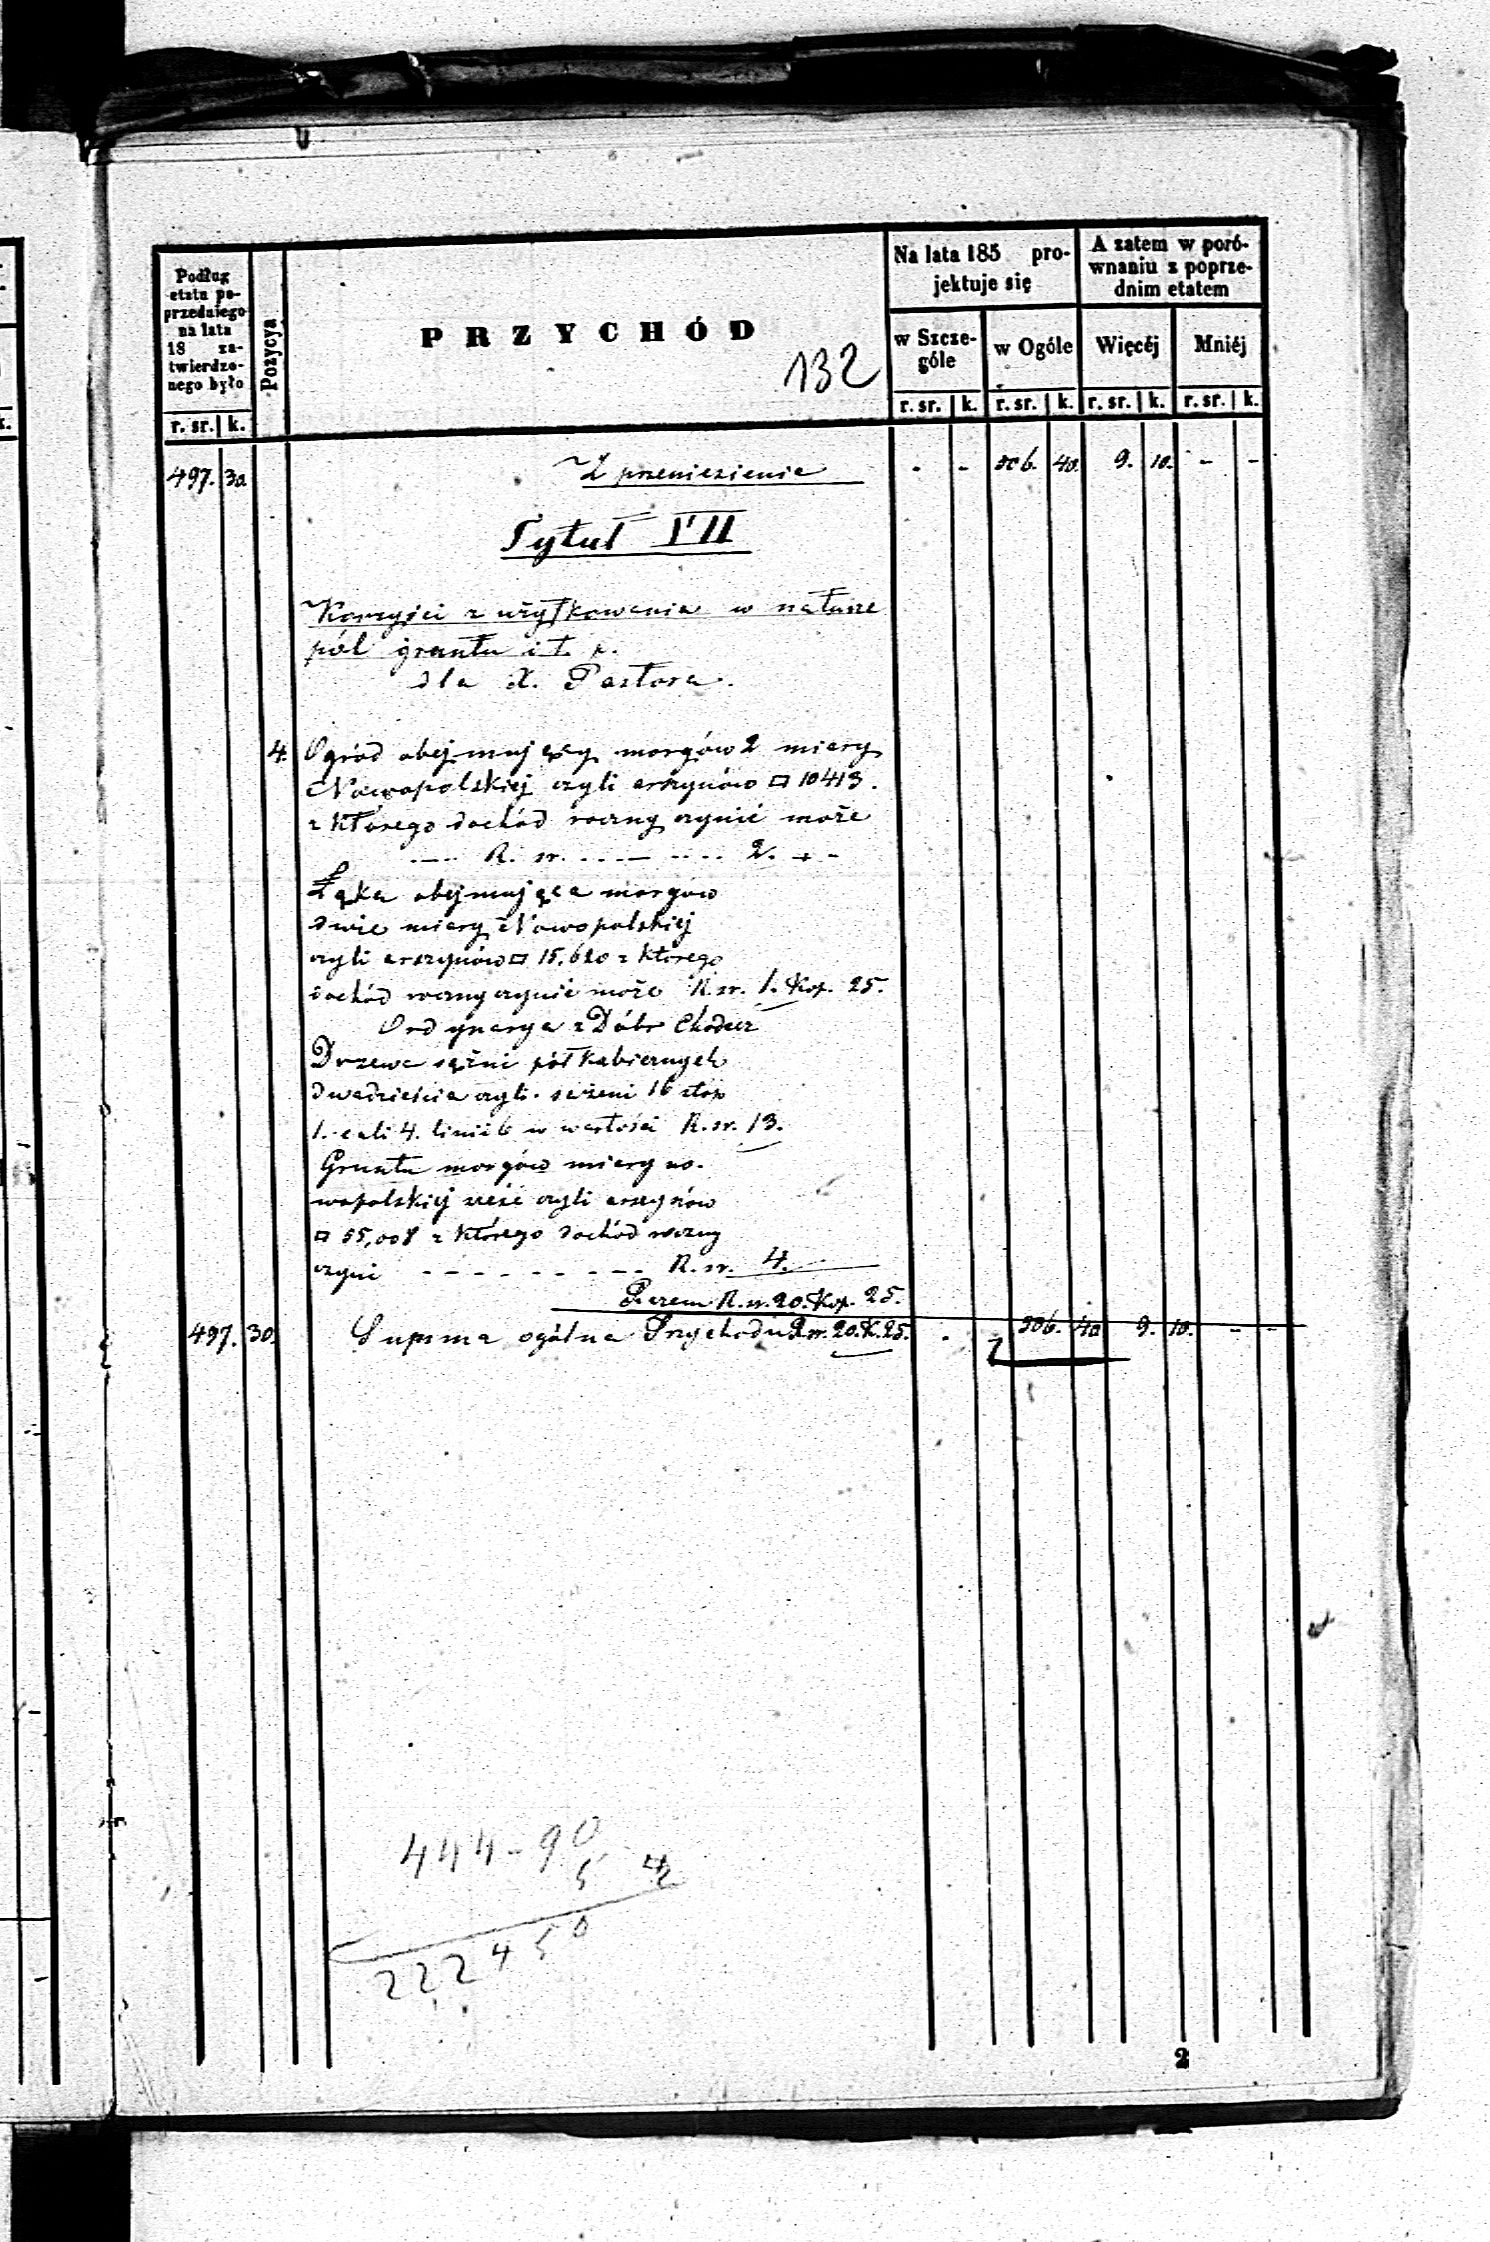 Podług
etatu po-
przedniego
na lata
18 za-
twierdzo-
nego było
r. sr. k.
Pozycya
PRZYCHÓD
132
Na lata 185 pro-
jektuje się
w Szcze-
góle
r. sr. k.
w Ogóle
r. sr. k.
A zatem w poró-
wnaniu z poprze-
dnim etatem
Więcéj
r. sr. k.
Mniéj
r. sr. k.
497. 30 Z przeniesienia - - 506. 40. 9. 10. - -
Tytuł VII
Korzyści z użytkowania w naturze
pól gruntu i t. p.
dla X. Pastora.
4. Ogród obejmujący morgów 2 miary
Nowopolskiej czyli arszynów □ 10413.
z którego dochód roczny czynić może
R. sr. 2. - -
Łąka obejmująca morgów
dwie miary Nowopolskiej
czyli arszynów □ 15,620 z którego
dochód roczny czynić może R. sr. 1. Kop. 25.
Ordynarya z Dóbr Chodecz
Drzewa sążni półkubicznych
dwadzieścia czyli sażeni 16 stop
1. cali 4. linii 6 w wartości R. sr. 13.
Gruntu morgów miary no-
wopolskiej sześć czyli arszynów
□ 55,008 z którego dochód roczny
czyni - - - - - - - - R. sr. 4.
Razem R. sr. 20. Kop. 25.
497. 30. Summa ogólna Przychodu R. sr. 20. K. 25. - 506. 40 9. 10. - -
444-90
5
222450
2